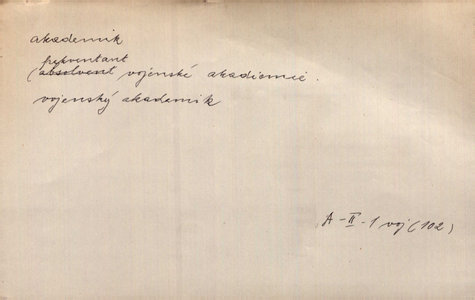 akademik
frekventant
(absolvent vojenské akademie.
vojenský akademik
A-II-1 voj (102)